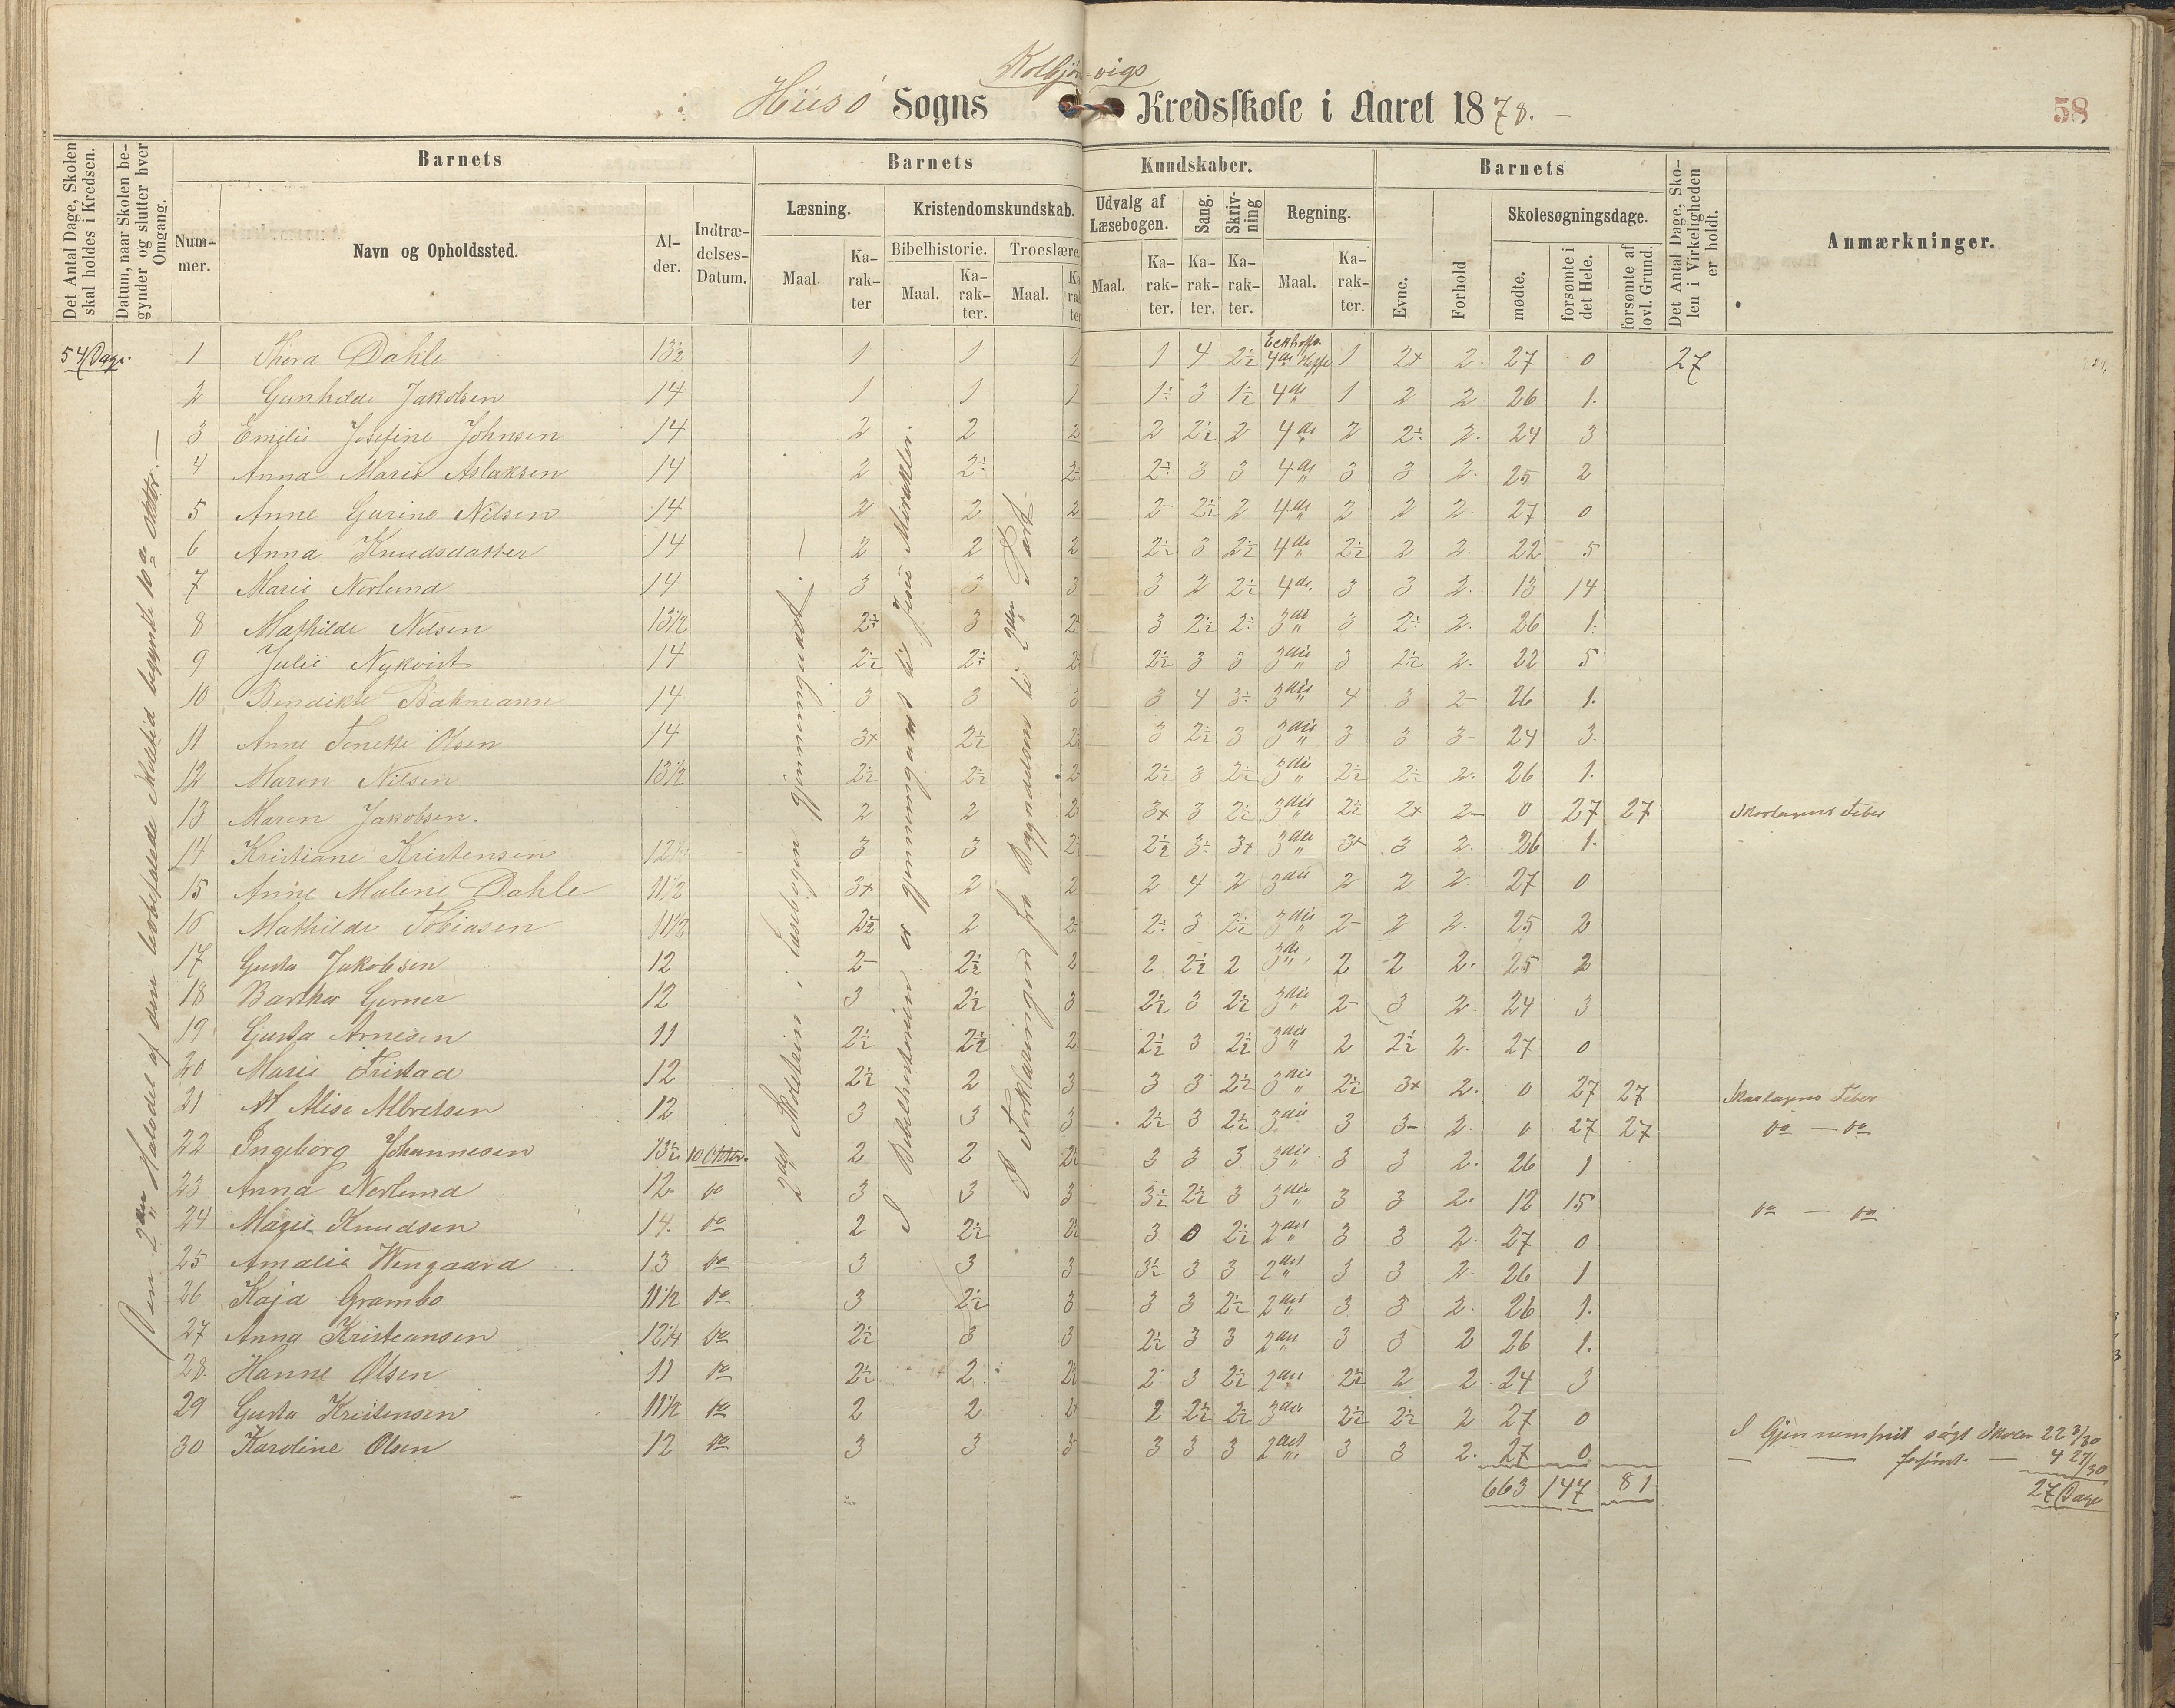 Kolbjörnsvigs
Hiisö Sogns Kredsskole i Aaret 1878.
58
Det Antal Dage, Skolen skal holdes i Kredsen.
Datum, naar Skolen begynder og slutter hver Omgang.
Barnets
Barnets
Kundskaber.
Barnets
Det Antal Dage, Skolen i Virkeligheden er holdt.
Anmærkninger.
Nummer.
Navn og Opholdssted.
Alder.
Indtrædelses-Datum.
Læsning.
Kristendomskundskab.
Udvalg af Læsebogen.
Sang.
Skrivning
Regning.
Evne.
Forhold
Skolesøgningsdage.
Bibelhistorie.
Troeslære.
Maal.
Karakter
Maal.
Karakter.
Maal.
Karakter
Maal.
Karakter.
Karakter.
Karakter.
Maal.
Karakter.
mødte.
forsømte i det Hele.
forsømte af lovl. Grund.
54 Dage.
Den 2den Halvdel af den lovbefalede Skoletid begyndte 10de Oktbr.
2det Skoletrin i Læsebogen gjennemgaaet.
I Bibelhistorien er gjennemgaaet til Jesu Mirakler.
I Forklaringen fra Begyndelsen til 2den Part
1 Thora Dahle 13½ 1 1 1 1 4 2½ 4de Hefte 1 2+ 2. 27 0 27
2 Gunhilde Jakobsen 14 1 1 1 1÷ 3 1½ 4de 1 2 2. 26 1.
3 Emilie Josefine Johnsen 14 2 2 2 2 2½ 2 4de 2 2÷ 2. 24 3
4 Anna Marie Aslaksen 14 2 2÷ 2÷ 2÷ 3 3 4de 3 3 2. 25 2
5 Anne Gurine Nilsen 14 2 2 2 2- 2½ 2 4de 2 2 2 27 0
6 Anna Knudsdatter 14 2 2 2 2½ 3 2½ 4de 2½ 2 2. 22 5
7 Marie Norlund 14 3 3 3 3 2 2½ 4de. 3 3 2. 13 14
8 Mathilde Nilsen 13½ 2÷ 3 2÷ 3 2½ 2÷ 3die 3 2÷ 2. 26 1.
9 Julie Nykvist 14 2½ 2÷ 2 2½ 3 3 3die 3 2½ 2. 22 5
10 Bendikte Bakmann 14 3 3 3 3 4 3÷ 3die 4 3 2- 26 1.
11 Anne Tonette Olsen 14 3+ 2½ 2½ 3 2½ 3 3die 3 3 3- 24 3.
12 Maren Nilsen 13½ 2½ 2½ 2 2½ 3 2½ 3die 2½ 2½ 2. 26 1.
13 Maren Jakobsen. 2 2 2 3+ 3 2½ 3die 2½ 2+ 2- 0 27 27 Skarlagens Feber
14 Kristiane Kristensen 12¼ 3 3 2½ 2½ 3÷ 3+ 3die 3+ 3 2. 26 1.
15 Anne Malene Dahle 11½ 3+ 2 2 2 4 2 3die 2 2 2. 27 0
16 Mathilde Tobiasen 11½ 2½ 2 2÷ 2÷ 3 2½ 3die 2- 2 2. 25 2
17 Gusta Jakobsen 12 2- 2½ 2 2 2½ 2 3die 2 2 2. 25 2
18 Bartha Gerner 12 3 2½ 3 2½ 3 2½ 3die 2- 3 2. 24 3
19 Gusta Arnesen 11 2½ 2½ 2 2½ 3 2½ 3die 2 2½ 2. 27 0
20 Marie Tristad 12 2½ 2 3 3 3 2½ 3die 2½ 3+ 2. 0 27 27 Skarlagens Feber
21 Alise Albretsen 12 3 3 3 2½ 3 2½ 3die 3 3- 2. 0 27 27 do — do
22 Ingeborg Johannesen 13½ 10 Oktbr. 2 2 2½ 3 3 3 3die 3 3 2. 26 1
23 Anna Norlund 12 do 3 3 3 3½ 2½ 3 3die 3 3 2. 12 15 do — do
24 Marie Knudsen 14. do 2 2½ 2½ 3 0 2½ 2det 3 3 2. 27 0
25 Amalie Wengaard 13 do 3 3 3 3½ 3 3 2det 3 3 2. 26 1
26 Kaja Grambo 11½ do 3 2½ 3 3 3 2½ 2det 3 3 2. 26 1.
27 Anna Kristiansen 12¼ do 2½ 3 3 2½ 3 3 2det 3 3 2 26 1.
28. Hanne Olsen 11 do 2½ 2 2½ 2 3 2½ 2det 2½ 2 2 24 3
29 Gusta Kristensen 11½ do 2 2 2 2 2½ 2½ 3die 2½ 2½ 2 27 0
30 Karoline Olsen 12 do 3 3 3 3 3 3 2det 3 3 2. 27 0
663 147 81
I Gjennemsnit søgt Skolen 22 3/30
— — forsømt. — 4 27/30
27 Dage